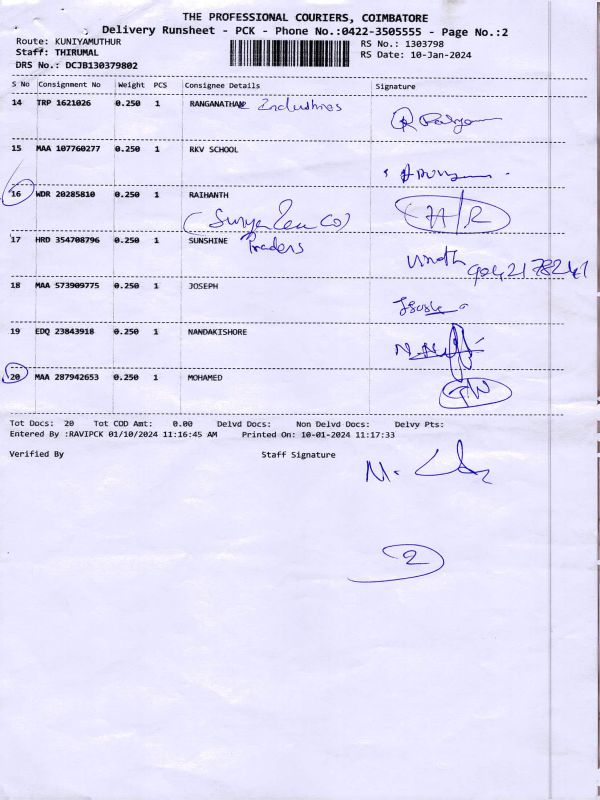 THE PROFESSIONAL COURIERS, COIMBATORE
Delivery Runsheet - PCK - Phone No.:0422-3505555 - Page No.:2
Route: KUNIYAMUTHUR
RS No.: 1303798
Staff: THIRUMAL
RS Date: 10-Jan-2024
DRS No.: DCJB130379802
S No Consignment No Weight PCS Consignee Details Signature
14 TRP 1621026 0.250 1 RANGANATHAN Industries
15 MAA 107760277 0.250 1 RKV SCHOOL
16 WDR 20285810 0.250 1 RAIHANTH
17 HRD 354708796 0.250 1 SUNSHINE Traders
18 MAA 573909775 0.250 1 JOSEPH
19 EDQ 23843918 0.250 1 NANDAKISHORE
20 MAA 287942653 0.250 1 MOHAMED
Tot Docs: 20 Tot COD Amt: 0.00 Delvd Docs: Non Delvd Docs: Delvy Pts:
Entered By :RAVIPCK 01/10/2024 11:16:45 AM Printed On: 10-01-2024 11:17:33
Verified By Staff Signature
2